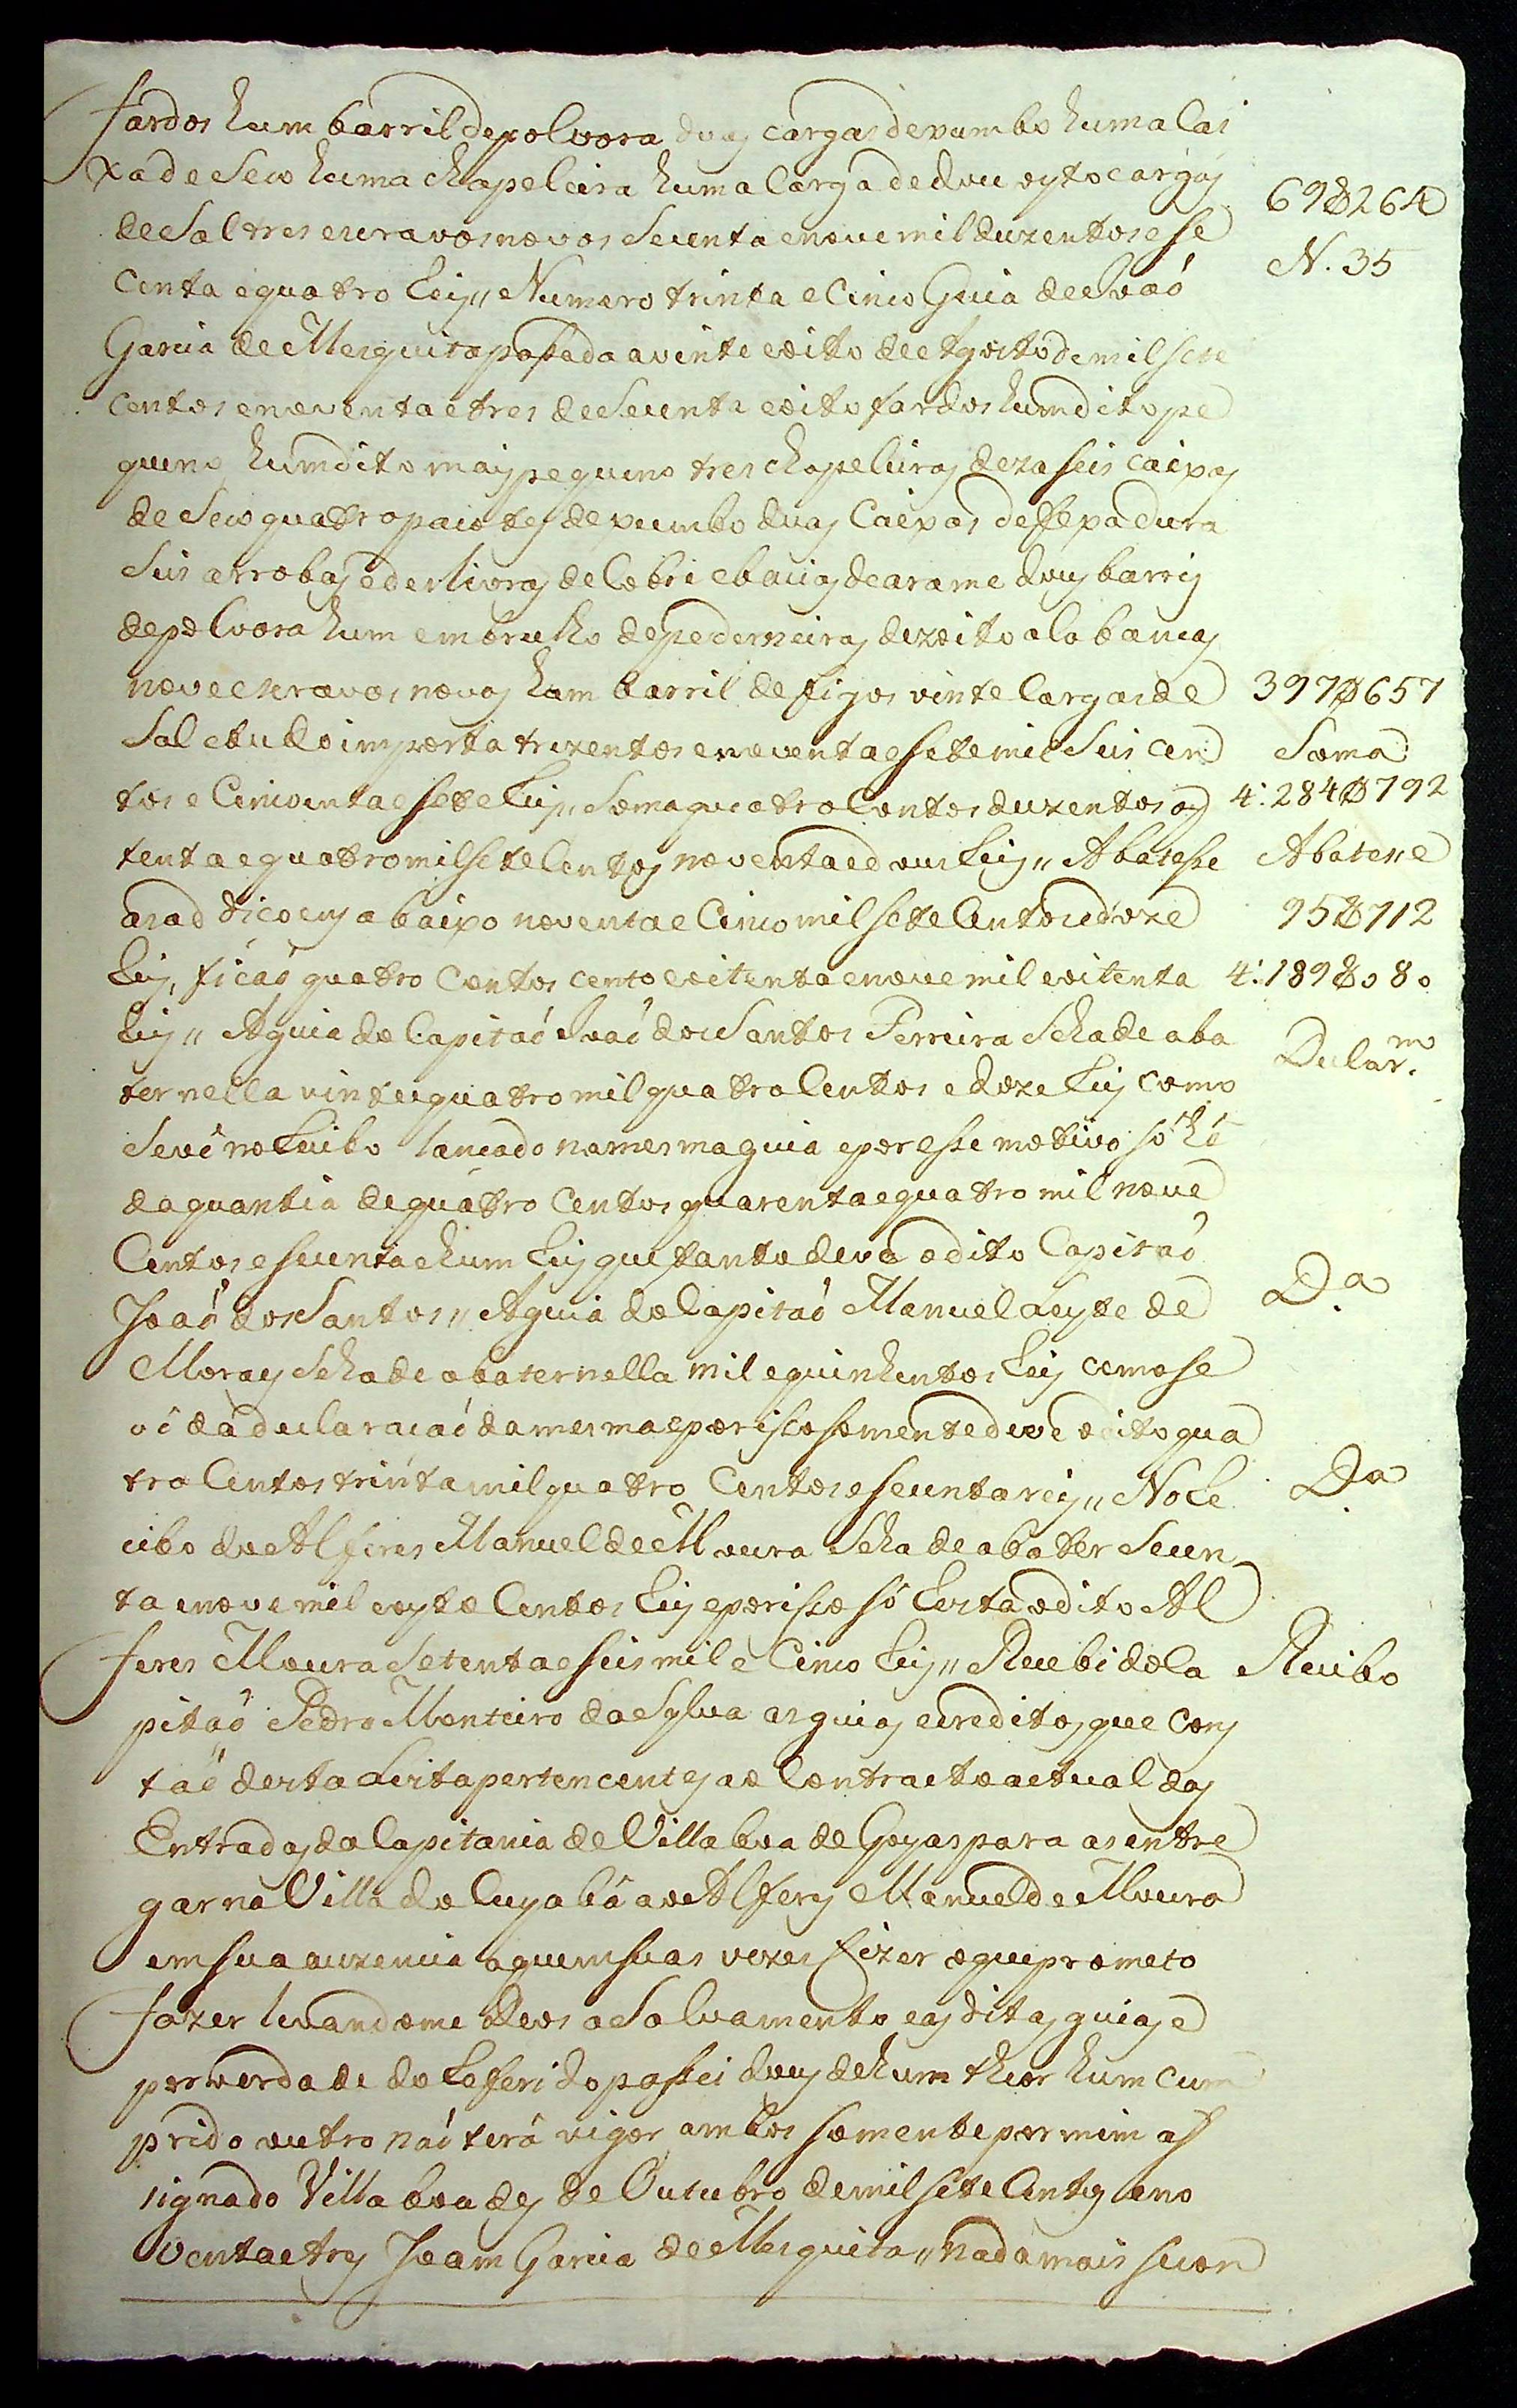 fardos hum barril de polvora duas cargas de xumbo huma Cai
xa de Seco huma chapeleira huma Carga de Louc oyto cargas
de Sal tres escravos novos Secenta e nove mil duzentos e se
69$264
centa e quatro Reis,, Numero trinta e Cinco Guia de Joaõ
N. 35
Garcia de Mesquita passada a vinte e oito de Agosto de mil sete
centos e noventa e tres de Secenta e oito fardos hum dito pe
queno hum dito mais pequeno tres chapeleiras dezaseis caixas
de Seco quatro paiotes de xumbo duas Caixas de ffexadura
Seis arrobas e des livras de Cobre e bacias de arame dous barris
de polvora hum embrulho de pederneiras dezoito alabancas
nove escravos novos hum barril de figos vinte Cargas de
397$657
Sal e tudo importa trezentos e noventa e sete mil Seis cen
Soma
tos e Cincoenta e sete Reis,, Soma quatro Contos duzentos oy
4:284$792
tenta e quatro mil sete Centos noventa e dous Reis,, Abatesse
Abatesse
as ad dicoens abaixo noventa e Cinco mil sete Centos e doze
95$712
Reis, ficaõ quatro Contos cento e oitenta e nove mil e oitenta
4:189$080
Reis,, A guia do Capitaõ Joaõ dos Santos Ferreira Se ha de aba
Declar.m
ter nella vinte e quatro mil quatro Centos e doze Reis como
Se vê no Recibo lancado na mesma guia e por esse motivo só hé
da quantia de quatro Centos quarenta e quatro mil nove
Centos e secenta e hum Reis que tanto deve o dito Capitaõ
Joaõ dos Santos,, A guia do Capitaõ Manuel Leyte de
D.a
Moraes Se ha de abater nella mil e quinhentos Reis como se
vê da declaracaõ da mesma e por isso somente deve o dito qua
tro Centos trinta mil quatro Centos e secenta reis,, No Re
D.a
cibo do Alferes Manuel de Moura Se ha de abater Secen
ta e nove mil e oyto Centos Reis e por isso só Resta o dito Al
feres Moura Setenta e seis mil e Cinco Reis,, Recebi do Ca
Recibo
pitaõ Pedro Monteiro da Sylva as guias e creditos que cons
taõ desta Lista pertencentes ao Contracto actual das
Entradas da Capitania de Villa boa de Goyas para as entre
gar na Villa do Cuyabá ao Alferes Manuel de Moura
em sua auzencia a quem suas vezes fizer o que prometo
fazer levandome Deos a Salvamento e as ditas guias e
por verdade do Referido passei dous de hum theor hum cum
prido outro naõ terá vigor ambos somente por mim as
signado Villa boa des de Outubro de mil sete Centos e no
venta e tres Joam Garcia de Mesquita,, nada mais se con